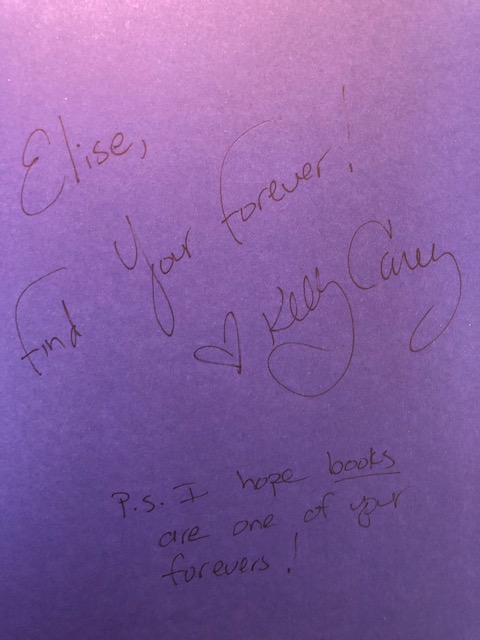 Elise,
Find Your Forever!
♡ Kelly Carey
P.S. I hope books
are one of your
forevers!